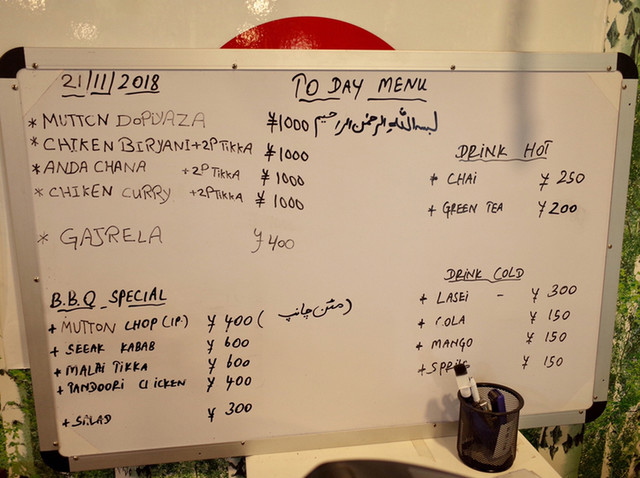 21/11/2018
TO DAY MENU
* MUTTON DOPIYAZA ¥1000 بسم اللہ الرحمٰن الرحیم
* CHIKEN BIRYANI+2PTIKKA ¥1000
* ANDA CHANA +2PTIKKA ¥1000
* CHIKEN CURRY +2PTIKKA ¥1000
* GAJRELA ¥400
DRINK HOT
* CHAI ¥250
+ GREEN TEA ¥200
B.B.Q SPECIAL
+ MUTTON CHOP (1P.) ¥400 (مٹن چانپ)
+ SEEAK KABAB ¥600
+ MALAI TIKKA ¥600
+ TANDOORI CLICKEN ¥400
+ SALAD ¥300
DRINK COLD
+ LASEI - ¥300
+ COLA ¥150
+ MANGO ¥150
+ SPRITE ¥150